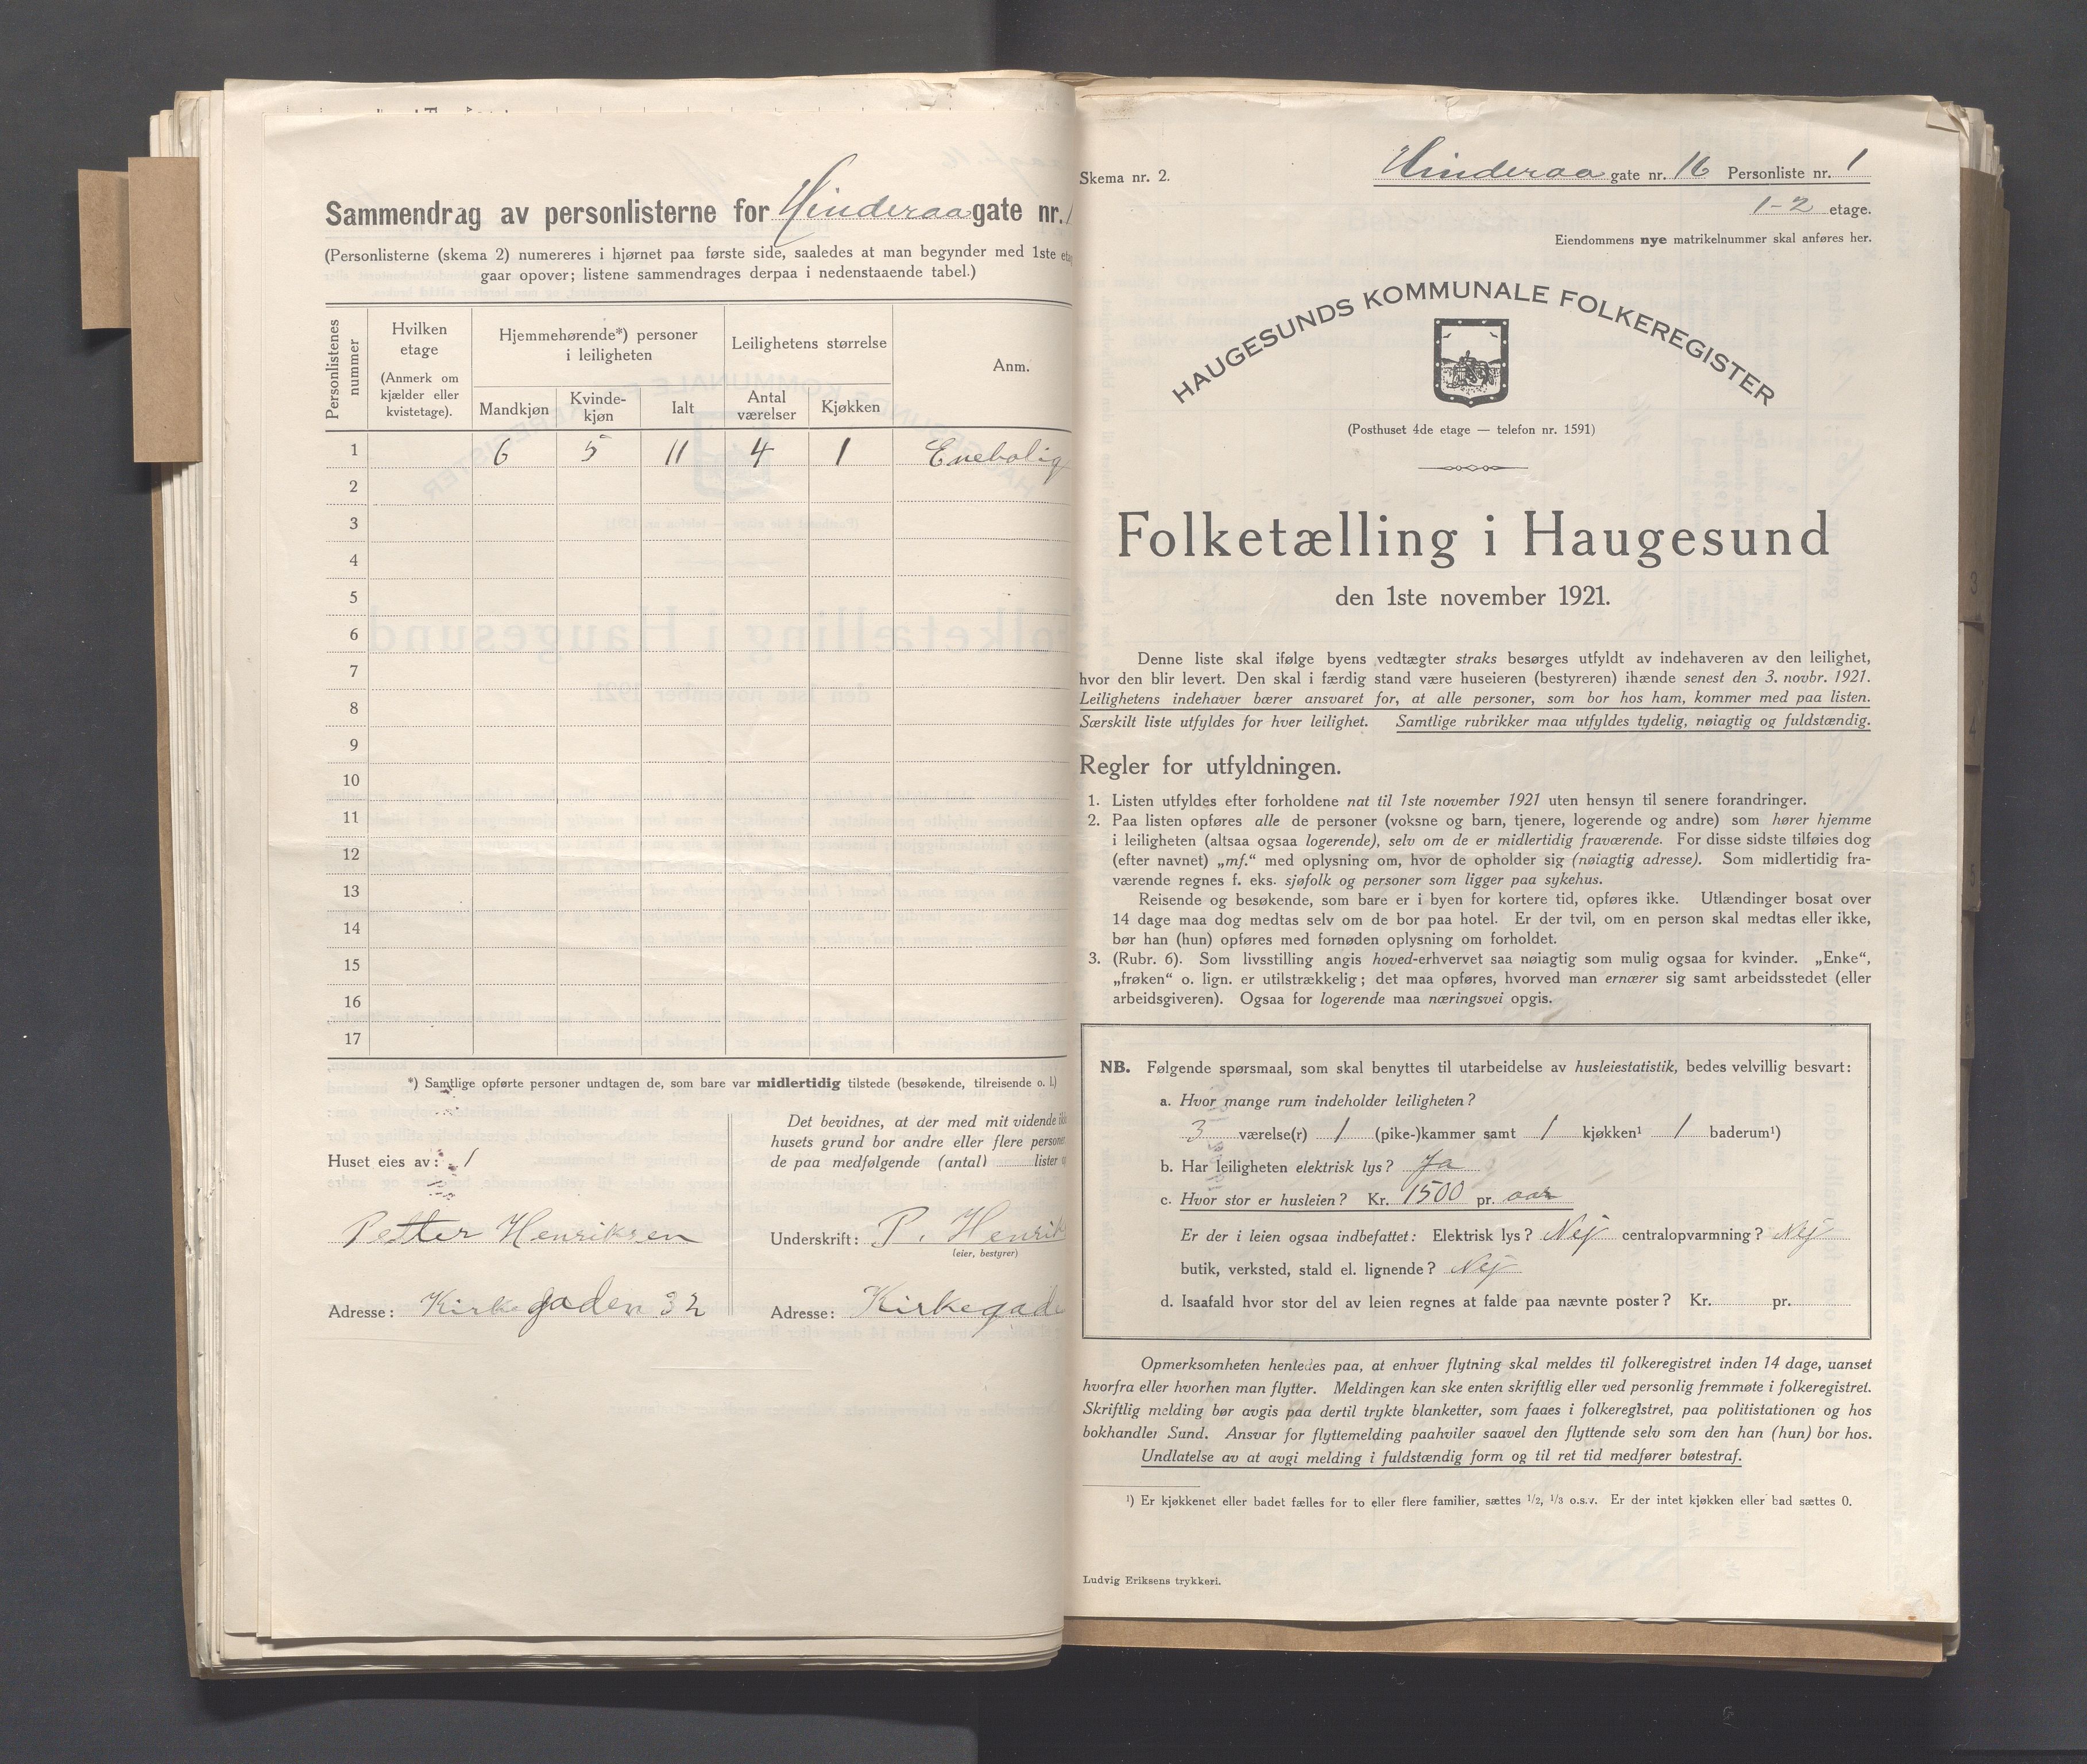 Sammendrag av personlisterne for Hinderaagate nr. 1
(Personlisterne (skema 2) numereres i hjørnet paa første side, saaledes at man begynder med 1ste
gaar opover; listene sammendrages derpaa i nedenstaaende tabel.)
Personlistenes nummer
Hvilken etage
(Anmerk om kjælder eller kvistetage).
Hjemmehørende*) personer i leiligheten
Mandkjøn
Kvinde-kjøn
Ialt
Leilighetens størrelse
Antal værelser
Kjøkken
Anm.
1 6 5 11 4 1 Enebolig
2
3
4
5
6
7
8
9
10
11
12
13
14
15
16
17
*) Samtlige opførte personer undtagen de, som bare var midlertidig tilstede (besøkende, tilreisende o. l.)
Huset eies av:
Petter Henriksen
Adresse: Kirkegaden 32
Det bevidnes, at der med mit vidende
husets grund bor andre eller flere
de paa medfølgende (antal) lister
Underskrift: P. Henrik
(eier, bestyrer)
Adresse: Kirkegade
Skema nr. 2.
Hinderaa gate nr. 16 Personliste nr. 1
1-2 etage.
Eiendommens nye matrikelnummer skal anføres her.
HAUGESUNDS KOMMUNALE FOLKEREGISTER
(Posthuset 4de etage — telefon nr. 1591)
Folketælling i Haugesund
den 1ste november 1921.
Denne liste skal ifølge byens vedtægter straks besørges utfyldt av indehaveren av den leilighet,
hvor den blir levert. Den skal i færdig stand være huseieren (bestyreren) ihænde senest den 3. novbr. 1921.
Leilighetens indehaver bærer ansvaret for, at alle personer, som bor hos ham, kommer med paa listen.
Særskilt liste utfyldes for hver leilighet. Samtlige rubrikker maa utfyldes tydelig, nøiagtig og fuldstændig.
Regler for utfyldningen.
1. Listen utfyldes efter forholdene nat til 1ste november 1921 uten hensyn til senere forandringer.
2. Paa listen opføres alle de personer (voksne og barn, tjenere, logerende og andre) som hører hjemme
i leiligheten (altsaa ogsaa logerende), selv om de er midlertidig fraværende. For disse sidste tilføies dog
(efter navnet) „mf.“ med oplysning om, hvor de opholder sig (nøiagtig adresse). Som midlertidig fra-
værende regnes f. eks. sjøfolk og personer som ligger paa sykehus.
Reisende og besøkende, som bare er i byen for kortere tid, opføres ikke. Utlændinger bosat over
14 dage maa dog medtas selv om de bor paa hotel. Er der tvil, om en person skal medtas eller ikke,
bør han (hun) opføres med fornøden oplysning om forholdet.
3. (Rubr. 6). Som livsstilling angis hoved-erhvervet saa nøiagtig som mulig ogsaa for kvinder. „Enke“,
„frøken“ o. lign. er utilstrækkelig; det maa opføres, hvorved man ernærer sig samt arbeidsstedet (eller
arbeidsgiveren). Ogsaa for logerende maa næringsvei opgis.
NB. Følgende spørsmaal, som skal benyttes til utarbeidelse av husleiestatistik, bedes velvillig besvart:
a. Hvor mange rum indeholder leiligheten?
3 værelse(r) 1 (pike-)kammer samt 1 kjøkken¹ 1 baderum¹)
b. Har leiligheten elektrisk lys? Ja
c. Hvor stor er husleien? Kr. 1500 pr. aar
Er der i leien ogsaa indbefattet: Elektrisk lys? Nej centralopvarmning? Nej
butik, verksted, stald el. lignende? Nej
d. Isaafald hvor stor del av leien regnes at falde paa nævnte poster? Kr. pr.
Opmerksomheten henledes paa, at enhver flytning skal meldes til folkeregistret inden 14 dage, uanset
hvorfra eller hvorhen man flytter. Meldingen kan ske enten skriftlig eller ved personlig fremmøte i folkeregistret.
Skriftlig melding bør avgis paa dertil trykte blanketter, som faaes i folkeregistret, paa politistationen og hos
bokhandler Sund. Ansvar for flyttemelding paahviler saavel den flyttende selv som den han (hun) bor hos.
Undlatelse av at avgi melding i fuldstændig form og til ret tid medfører bøtestraf.
¹) Er kjøkkenet eller badet fælles for to eller flere familier, sættes 1/2, 1/3 o.s.v. Er der intet kjøkken eller bad sættes 0.
Ludvig Eriksens trykkeri.